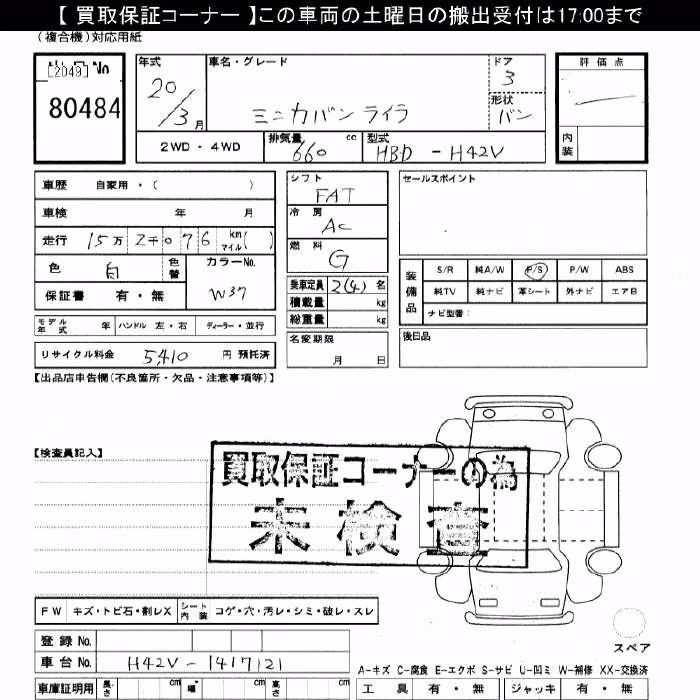 【 買取保証コーナー 】この車両の土曜日の搬出受付は17:00まで
(複合機)対応用紙
[2049] No
80484
年式
20/3月
車名・グレード
ミニカバン ライラ
ドア
3
形状
バン
評 価 点
内装
2WD ・ 4WD
排気量 660 cc
型式 HBD - H42V
車歴 自家用 ・ ( )
車検 年 月
走行 15万 2千076 km マイル( )
色 白 色替
カラーNo.
W37
保証書 有 ・ 無
モデル年式 年 ハンドル 左 ・ 右 ディーラー ・ 並行
リサイクル料金 5,410 円 預託済
シフト
FAT
冷 房
AC
燃 料
G
乗車定員 2(4) 名
積載量 kg
総重量 kg
名変期限
月 日
セールスポイント
装備品
S/R 純A/W P/S P/W ABS
純TV 純ナビ 革シート 外ナビ エアB
ナビ型番:
後日品
【出品店申告欄(不良箇所・欠品・注意事項等)】
【検査員記入】
買取保証コーナーの為
未検査
FW キズ・トビ石・割レX シート内装 コゲ・穴・汚レ・シミ・破レ・スレ
登録 No.
車台 No. H42V - 1417121
車庫証明用 長さ cm 幅 cm 高さ cm
スペア
A-キズ C-腐食 E-エクボ S-サビ U-凹ミ W-補修 XX-交換済
工 具 有 ・ 無 ジャッキ 有 ・ 無